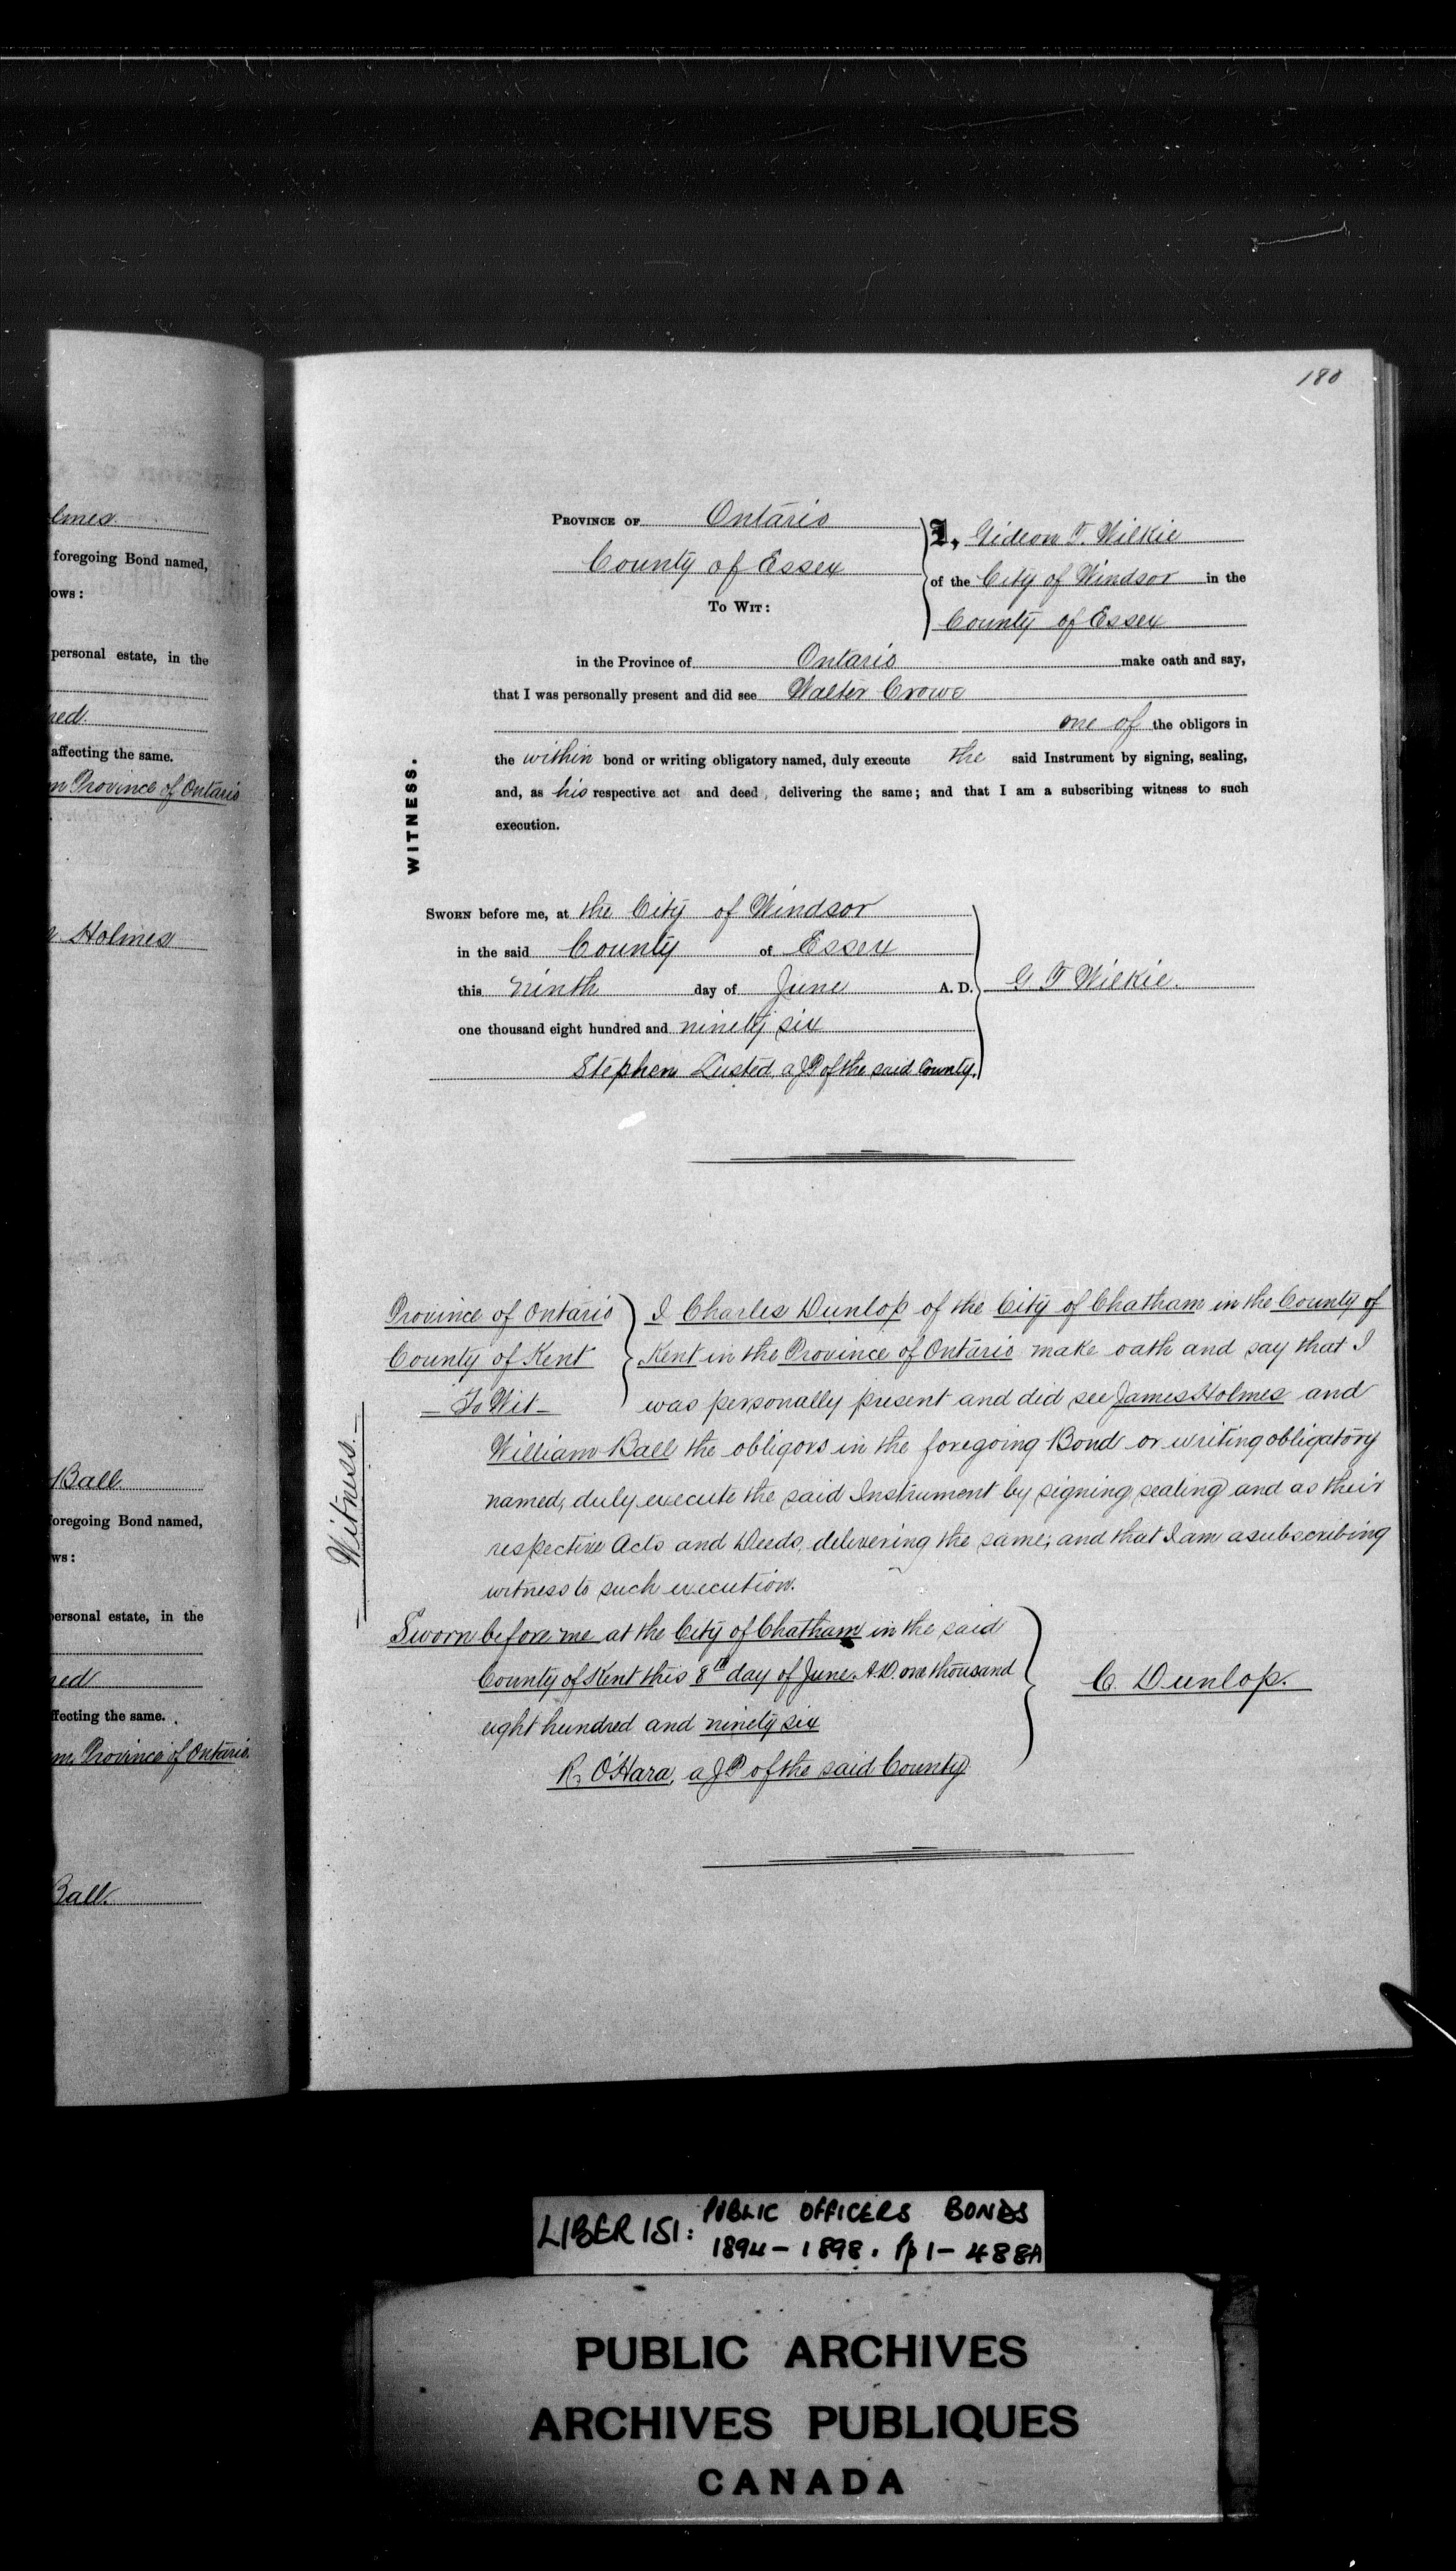 lmes
foregoing Bond named,
ows:
personal estate, in the
affecting the same.
Province of Ontario
Holmes
Ball
oregoing Bond named,
ws:
ersonal estate, in the
ffecting the same.
Province of Ontario
Ball
180
PROVINCE OF Ontario
County of Essex
TO WIT:
I, Gideon T. Wilkie
of the City of Windsor in the
County of Essex
in the Province of Ontario make oath and say,
that I was personally present and did see Walter Crowe
one of the obligors in
the within bond or writing obligatory named, duly execute the said Instrument by signing, sealing,
and, as his respective act and deed, delivering the same; and that I am a subscribing witness to such
execution.
WITNESS.
SWORN before me, at the City of Windsor
in the said County of Essex
this ninth day of June A. D.
one thousand eight hundred and ninety six
Stephen Lusted, a JP of the said County.
G T Wilkie.
Province of Ontario
County of Kent
- To Wit -
I Charles Dunlop of the City of Chatham in the County of
Kent in the Province of Ontario make oath and say that I
was personally present and did see James Holmes and
William Ball the obligors in the foregoing Bond or writing obligatory
named, duly execute the said Instrument by signing sealing and as their
respective Acts and Deeds, delivering the same; and that I am a subscribing
witness to such execution.
- Witness. -
Sworn before me at the City of Chatham in the said
County of Kent this 8th day of June. A.D. one thousand
eight hundred and ninety six
R. O'Hara, a JP of the said County
C. Dunlop.
LIBER 151: PUBLIC OFFICERS BONDS
1894-1898. pp 1-488A
PUBLIC ARCHIVES
ARCHIVES PUBLIQUES
CANADA